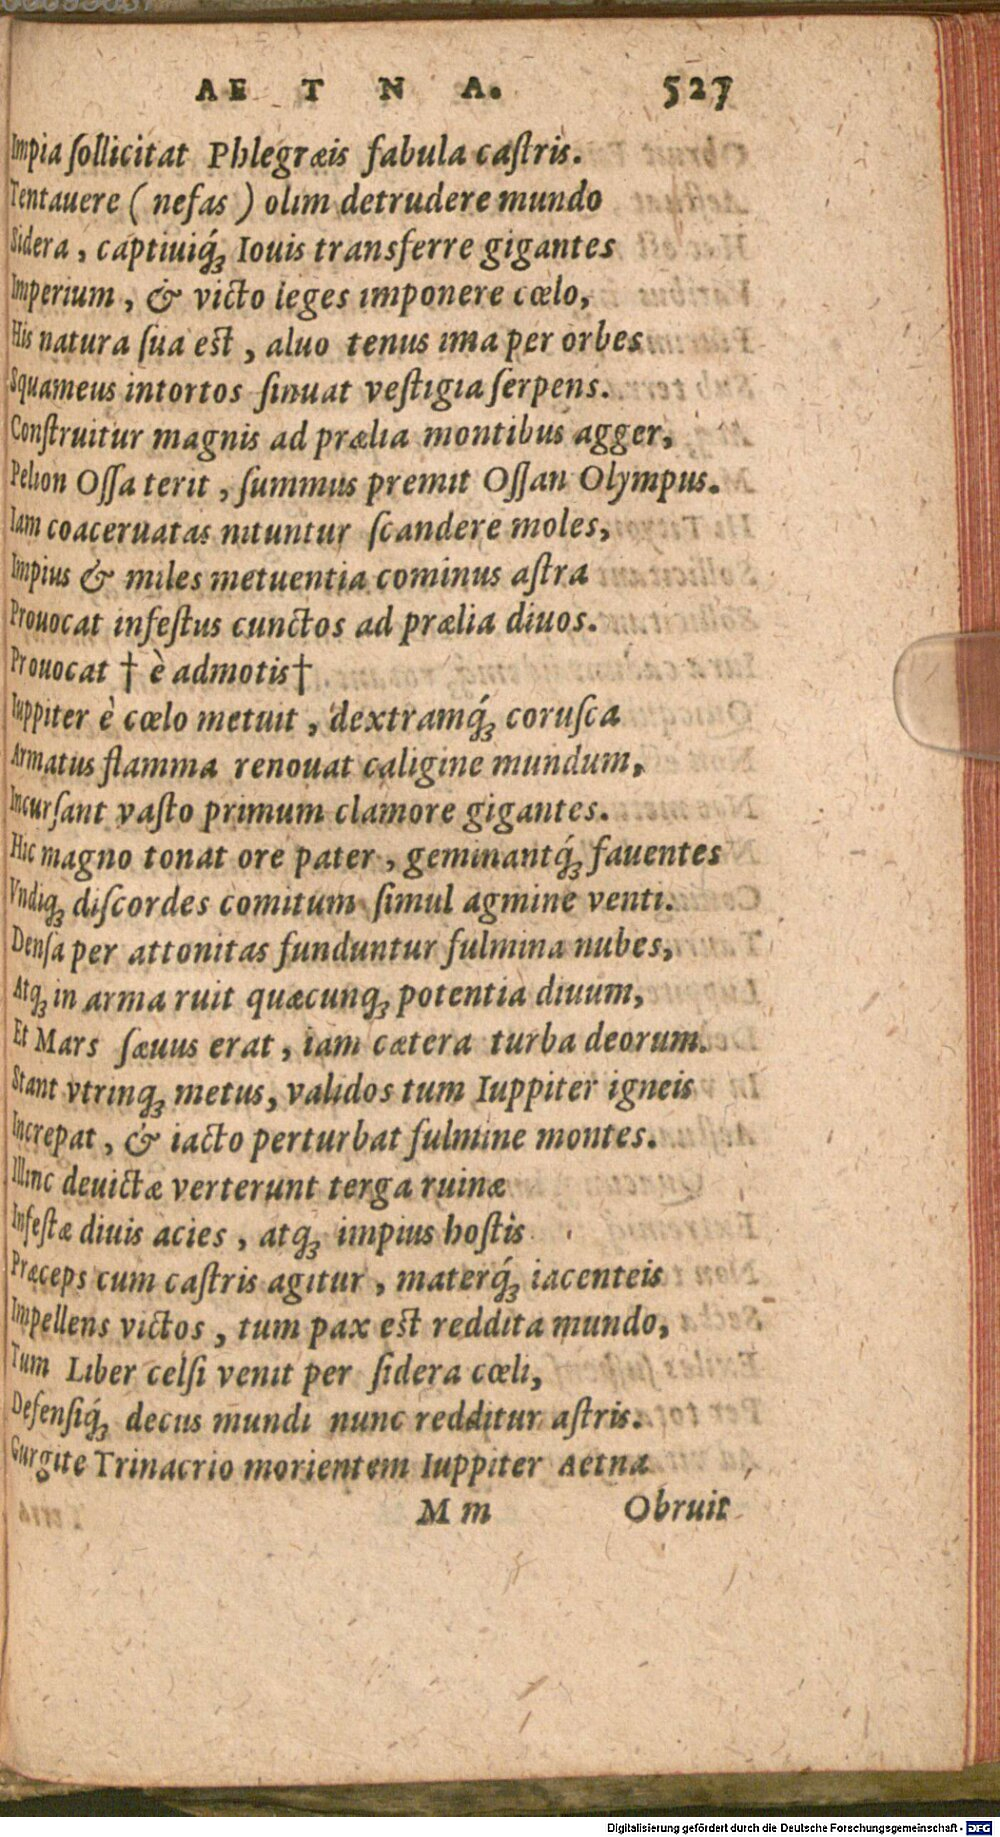 AETNA. 527
Impia ſollicitat Phlegræis fabula caſtris.
Tentauere ( nefas ) olim detrudere mundo
Sidera, captiuiq́ꝫ Iouis transferre gigantes
Imperium, & victo leges imponere cœlo,
His natura ſua eſt, aluo tenus ima per orbes
Squameus intortos ſinuat veſtigia ſerpens.
Conſtruitur magnis ad prælia montibus agger,
Pelion Oſſa terit, ſummus premit Oſſan Olympus.
Iam coaceruatas nituntur ſcandere moles,
Impius & miles metuentia cominus aſtra
Prouocat infeſtus cunctos ad prælia diuos.
Prouocat † è admotis†
Iuppiter è cœlo metuit, dextramq́ꝫ coruſca
Armatus flamma renouat caligine mundum,
Incurſant vaſto primum clamore gigantes.
Hic magno tonat ore pater, geminantq́ꝫ fauentes
Vndiqꝫ diſcordes comitum ſimul agmine venti.
Denſa per attonitas funduntur fulmina nubes,
Atqꝫ in arma ruit quæcunqꝫ potentia diuum,
Et Mars ſæuus erat, iam cætera turba deorum.
Stant vtrinqꝫ metus, validos tum Iuppiter igneis
Increpat, & iacto perturbat fulmine montes.
Illinc deuictæ verterunt terga ruinæ
Infeſtæ diuis acies, atqꝫ impius hoſtis
Præceps cum caſtris agitur, materq́ꝫ iacenteis
Impellens victos, tum pax eſt reddita mundo,
Tum Liber celſi venit per ſidera cœli,
Defenſiq́ꝫ decus mundi nunc redditur aſtris.
Gurgite Trinacrio morientem Iuppiter Aetna
M m Obruit
Digitalisierung gefördert durch die Deutsche Forschungsgemeinschaft - DFG